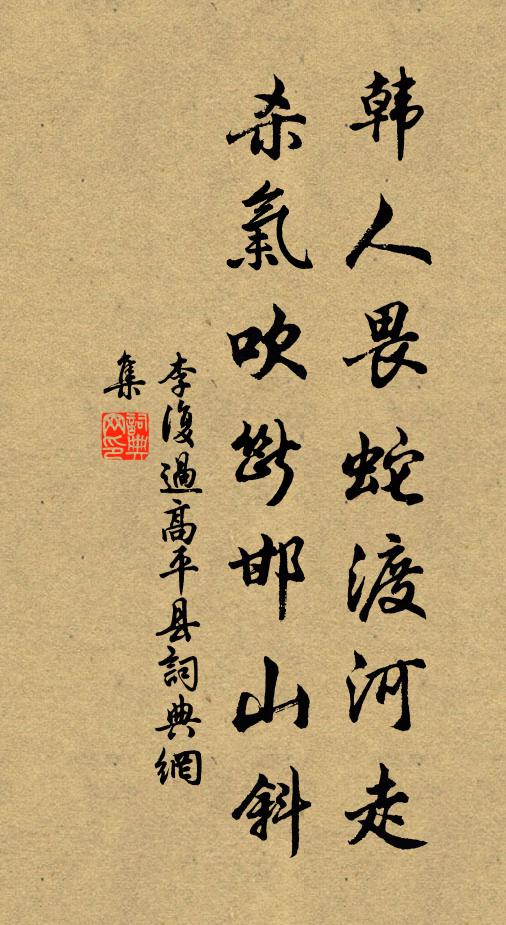 韩人畏蛇渡河走
杀氣吹断邯山斜
李復過高平县詞典網
集
詞典网印